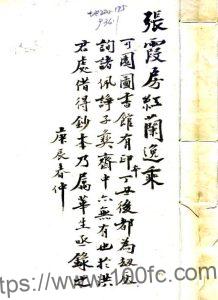 張霞房紅蘭逸乘
可園圖書館有印本丁丑後都為劫灰
詢諸佩諍子彝齋中亦無有也於洪
君處借得鈔本乃屬華生亟錄之
庚辰春仲
https://www.100fc.com